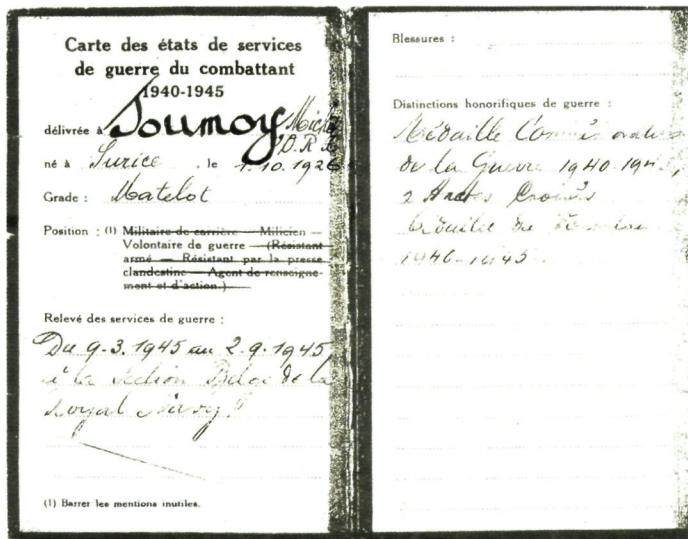 Carte des états de services
de guerre du combattant
1940-1945
délivrée à Soumoy
né à Surice , le 1.10.1926
Grade : Matelot
Position : (1) Militaire de carrière — Milicien —
Volontaire de guerre — (Résistant
armé — Résistant par la presse
clandestine — Agent de renseigne-
ment et d'action.)
Relevé des services de guerre :
Du 9-3.1945 au 2-9.1945
à la Section Belge de la
Royal Navy
(1) Barrer les mentions inutiles.
Blessures :
Distinctions honorifiques de guerre :
Médaille
de la Guerre 1940-194
2
Médaille du